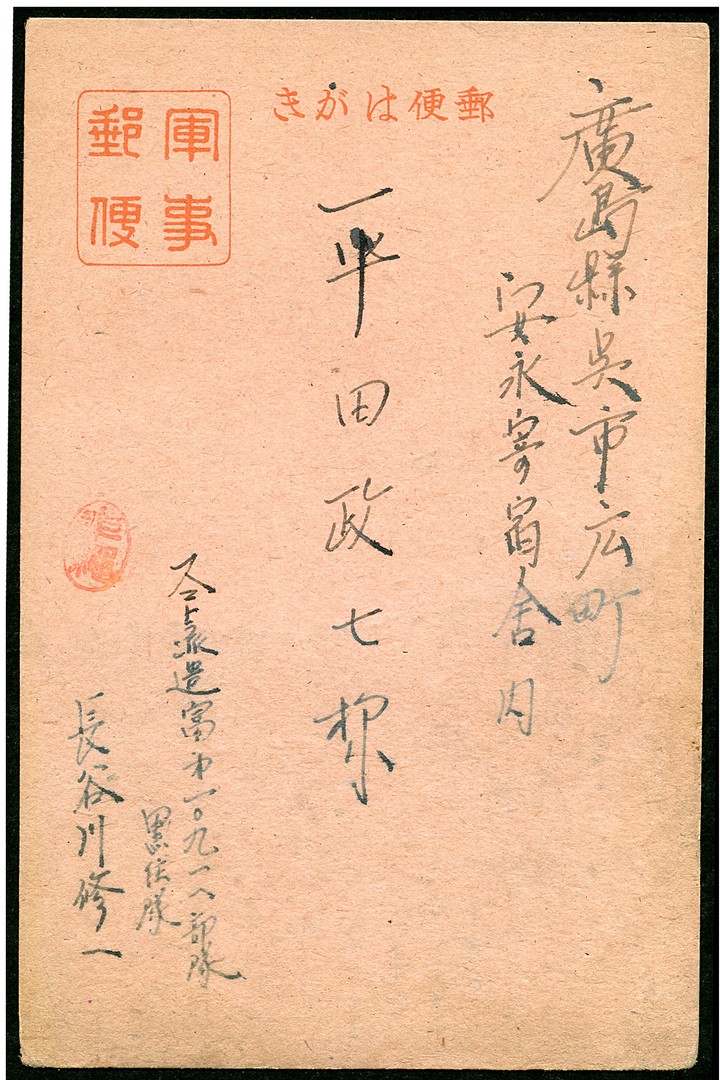 郵便はがき
軍事
郵便
廣島縣呉市広町
安永寄宿舎内
平田政七様
派遣富第一〇九一八部隊
隊
長谷川修一